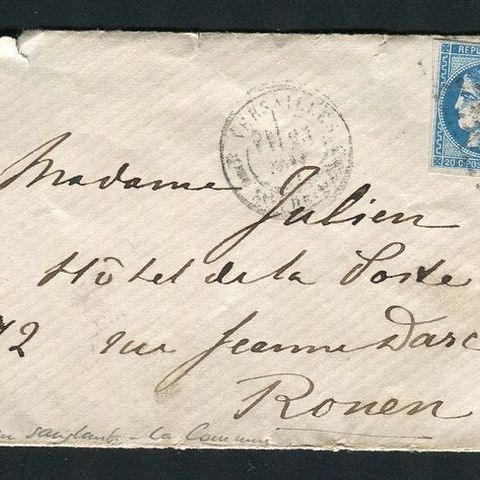 REPU
20·C·
VERSAILLES
Madame Julien
Hôtel de la Poste
72 rue Jeanne Darc
Rouen
sanglante - La Commune